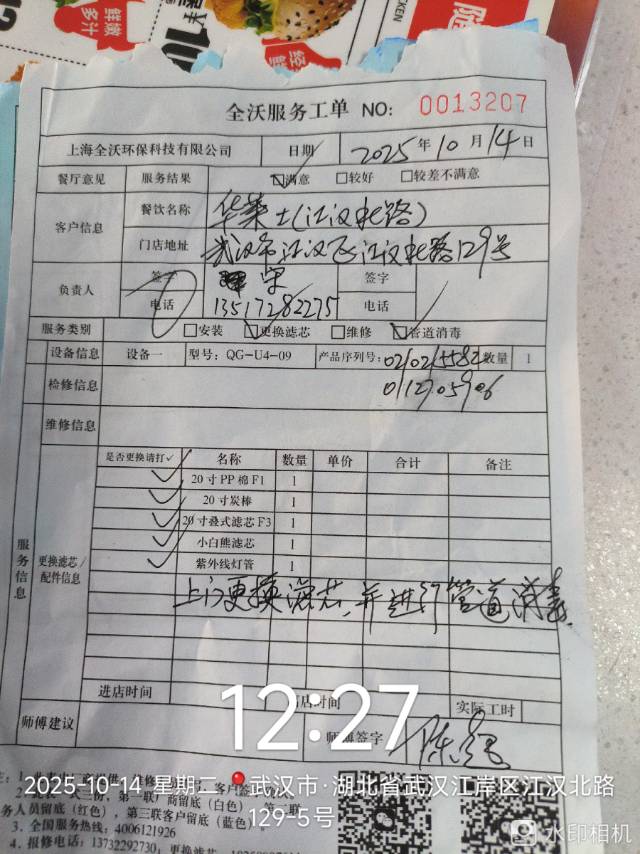 鲜嫩
多汁
全沃服务工单 NO: 0013207
上海全沃环保科技有限公司 日期 2025年10月14日
餐厅意见 服务结果 ☑满意 □较好 □较差不满意
客户信息 餐饮名称 华莱士(江汉北路)
门店地址 武汉市江汉区江汉北路129号
负责人 签字 签字
电话 13517282275 电话
服务类别 □安装 ☑更换滤芯 □维修 ☑管道消毒
设备信息 设备一 型号: QG-U4-09 产品序列号: 数量 1
检修信息
维修信息
服务信息
更换滤芯/配件信息
是否更换请打✓ 名称 数量 单价 合计 备注
✓ 20寸PP棉F1 1
✓ 20寸炭棒 1
✓ 20寸叠式滤芯F3 1
✓ 小白熊滤芯 1
✓ 紫外线灯管 1
上门更换滤芯,并进行管道消毒.
进店时间 店时间 实际工时
师傅建议 师傅签字
12:27
2025-10-14 星期二 武汉市·湖北省武汉江岸区江汉北路
129-5号
务人员留底(红色),第三联客户留底(蓝色)
3、全国服务热线: 4006121926
4、报修电话: 13732292730;
水印相机